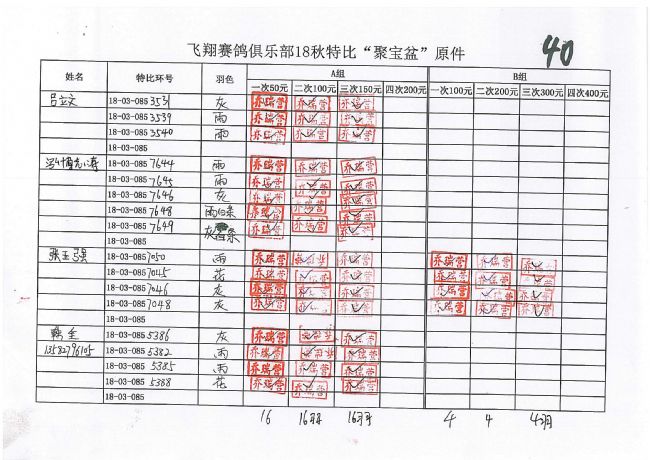 飞翔赛鸽俱乐部18秋特比“聚宝盆”原件 40
姓名 特比环号 羽色 A组 B组
一次50元 二次100元 三次150元 四次200元 一次100元 二次200元 三次300元 四次400元
吕立文 18-03-085 3531 灰 乔瑞营 乔瑞营 乔瑞营
18-03-085 3539 雨 乔瑞营 乔瑞营 乔瑞营
18-03-085 3540 雨 乔瑞营 乔瑞营 乔瑞营
18-03-085
18-03-085 7644 雨 乔瑞营 乔瑞营 乔瑞营
18-03-085 7645 雨 乔瑞营 乔瑞营 乔瑞营
18-03-085 7646 灰 乔瑞营 乔瑞营 乔瑞营
18-03-085 7648 雨白条 乔瑞营 乔瑞营 乔瑞营
18-03-085 7649 灰 条 乔瑞营 乔瑞营 乔瑞营
18-03-085
张玉强 18-03-085 7050 雨 乔瑞营 乔瑞营 乔瑞营 乔瑞营 乔瑞营
18-03-085 7045 花 乔瑞营 乔瑞营 乔瑞营 乔瑞营 乔瑞营
18-03-085 7046 灰 乔瑞营 乔瑞营 乔瑞营 乔瑞营 乔瑞营
18-03-085 7048 灰 乔瑞营 乔瑞营 乔瑞营 乔瑞营 乔瑞营
18-03-085
18-03-085 5386 灰 乔瑞营 乔瑞营
13582796105 18-03-085 5382 雨 乔瑞营 乔瑞营
18-03-085 5385 雨 乔瑞营 乔瑞营 乔瑞营
18-03-085 5388 花 乔瑞营 乔瑞营 乔瑞营
18-03-085
16 16 16 4 4 4